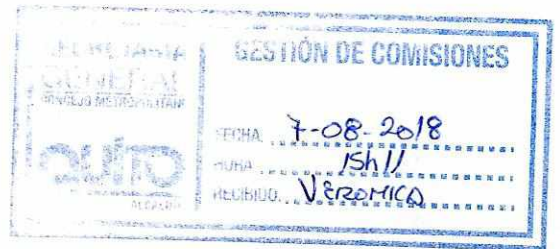 GENERAL
CONCEJO METROPOLITANO
QUITO
ALCALDÍA
GESTIÓN DE COMISIONES
FECHA. 7-08-2018
HORA 15h11
RECIBIDO. VEROMICA